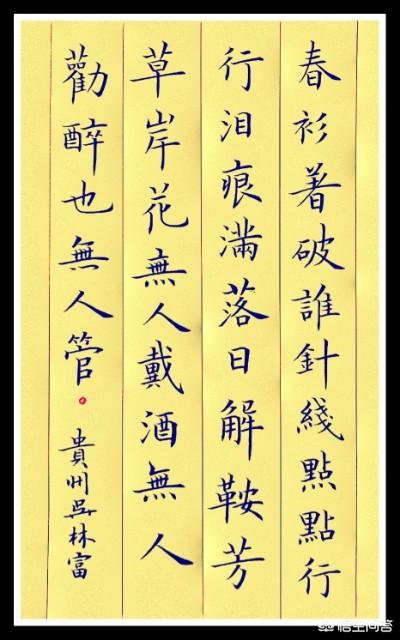 春衫著破誰針綫點點行
行泪痕滿落日解鞍芳
草岸花無人戴酒無人
勸醉也無人管。
貴州吳林富
悟空问答